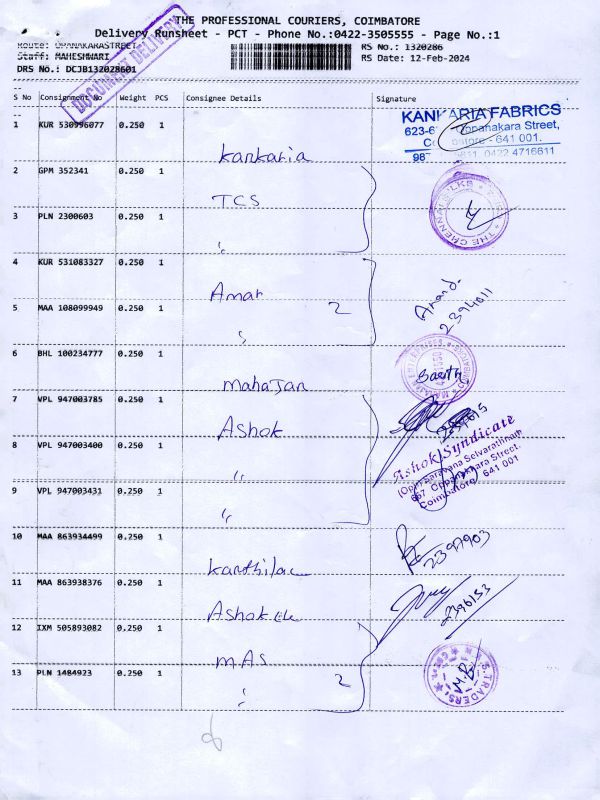 THE PROFESSIONAL COURIERS, COIMBATORE
Delivery Runsheet - PCT - Phone No.:0422-3505555 - Page No.:1
Route: OPANAKARASTREET RS No.: 1320286
Staff: MAHESHWARI RS Date: 12-Feb-2024
DRS No.: DCJB132028601
DOCUMENT DELIVERY
S No Consignment No Weight PCS Consignee Details Signature
1 KUR 530996077 0.250 1 Kankaria
KANKARIA FABRICS
Oppanakara Street,
- 641 001.
0422 4716811
2 GPM 352341 0.250 1 TCS
THE CHENNAI SILKS
3 PLN 2300603 0.250 1 "
4 KUR 531083327 0.250 1 Amar
2
Anand.
2394011
5 MAA 108099949 0.250 1 "
6 BHL 100234777 0.250 1 Mahajan
7 VPL 947003785 0.250 1 Ashok
8 VPL 947003400 0.250 1 "
Ashok Syndicate
(Opp) Saravana Selvarathnam
667, Oppanakara Street,
Coimbatore - 641 001
9 VPL 947003431 0.250 1 "
10 MAA 863934499 0.250 1
2397903
11 MAA 863938376 0.250 1 Ashok Ele
2396153
12 IXM 505893082 0.250 1 M.A.S
S.TRADERS
M.B
13 PLN 1484923 0.250 1 "
2